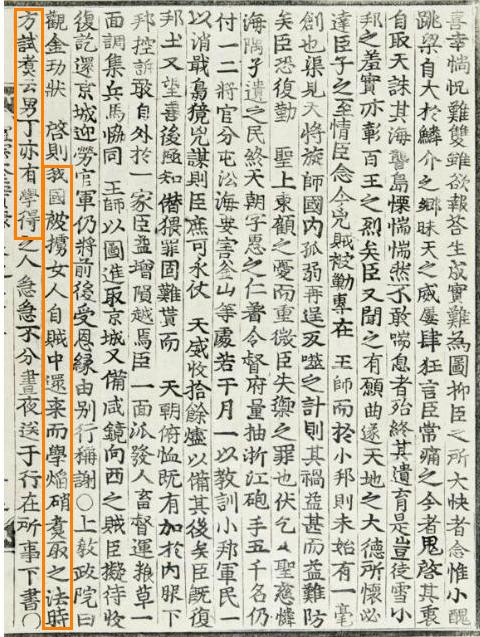 喜幸惝怳難雙雖欲報答生成實難爲圖抑臣之所大快者念惟小醜
跳梁自大於鱗介之鄕昧天之威屢肆狂言臣常痛之今者鬼啓其衷
自取天誅其海讋島慄惴惴然不敢喘息者殆終其遺育是豈徒雪小
邦之羞實亦彰百王之烈矣臣又聞之有願曲遂天地之大德所懷必
達臣子之至情臣念今兇賊被勦專在 王師而於小邦則未始有一毫
創也渠見大將旋師國內孤弱再逞反噬之計則其禍益甚而益難防
矣臣恐復勤 聖上東顧之憂而重微臣失禦之罪也伏乞 聖慈憐
海隅孑遺之民終天朝字惠之仁着令督府量抽浙江砲手五千名仍
付一二將官分屯沿海要害釜山等處若干月一以敎訓小邦軍民一
以消戢梟獍兇謀則臣庶可永仗 天威收拾餘燼以備其後矣臣旣復
邦土又望善後極知僭猥罪固難貰而 天朝俯恤旣有加於內服下
邦控訴敢自外於一家臣益增隕越焉臣一面派發人畜督運粮草一
面調集兵馬恊同 王師以圖進取京城又備咸鏡向西之賊臣擬待收
復訖還京城迎勞官軍仍將前後受恩緣由別行稱謝○上敎政院曰
觀金玏狀 啓則我國被擄女人自賊中還來而學焰硝煑取之法時
方試煑云男丁亦有學得之人急急不分晝夜送于行在所事下書○